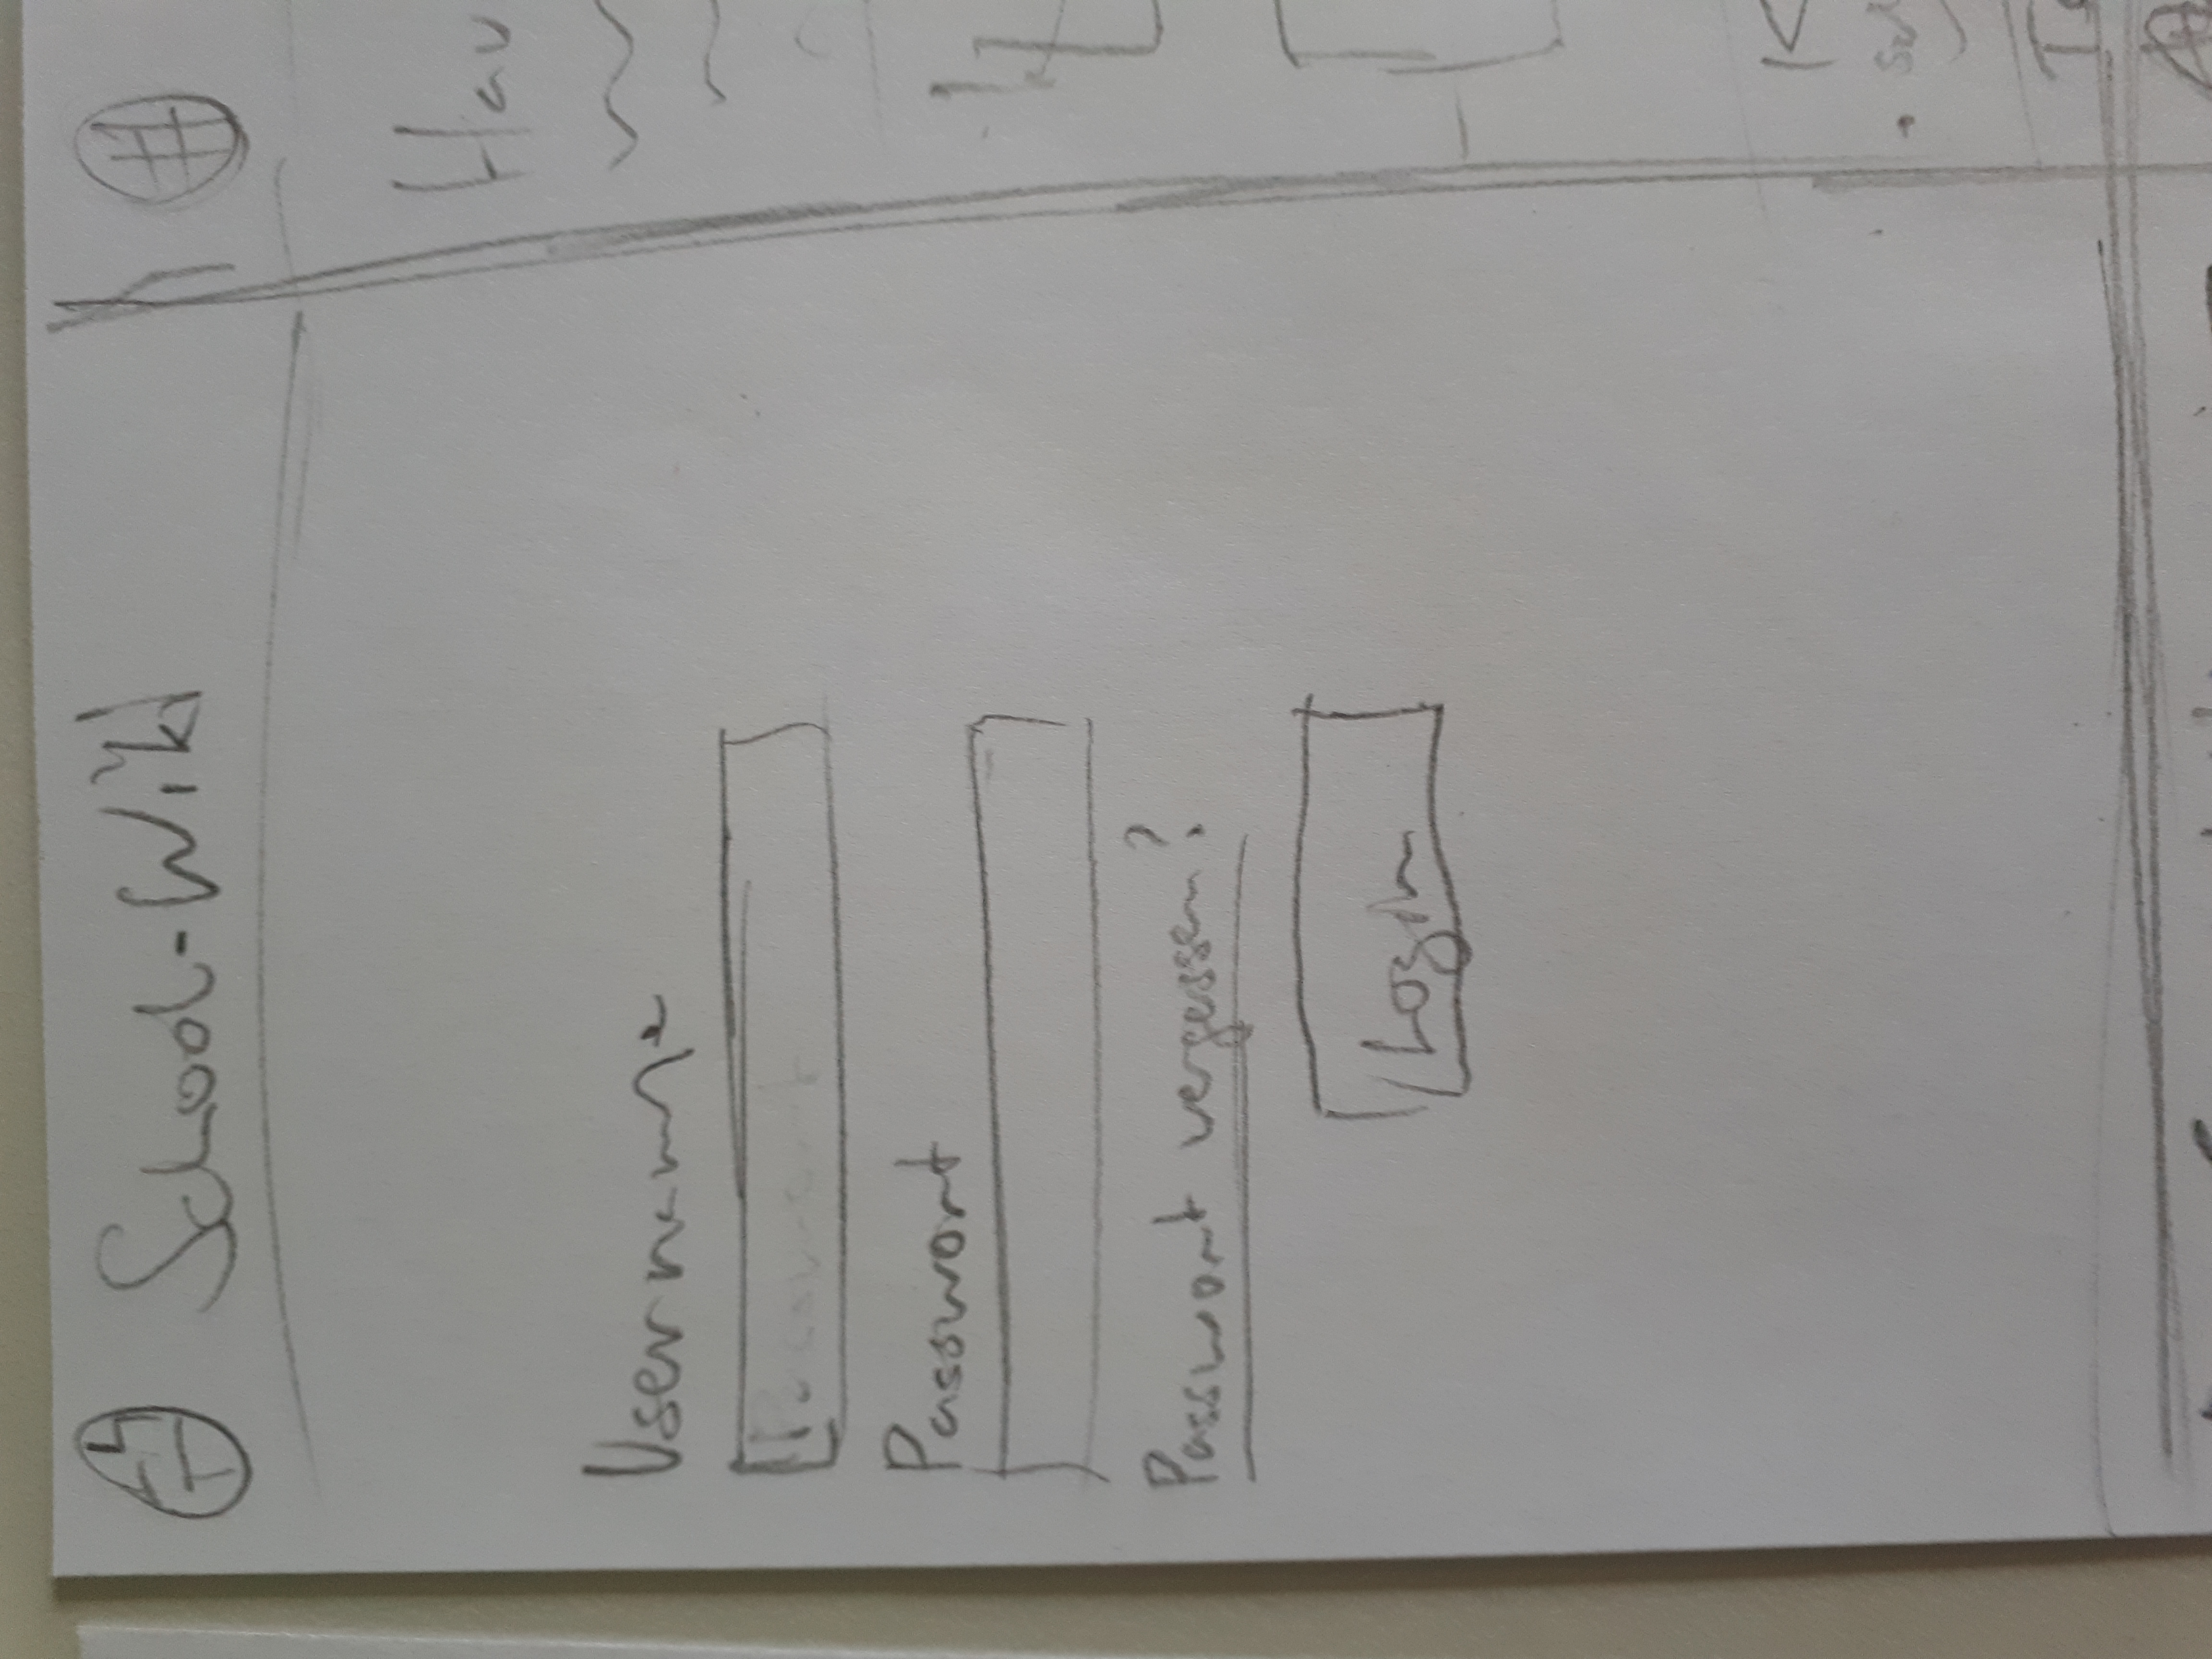 School-Wiki
Username
Passwort
Passwort vergessen?
Login
Hau